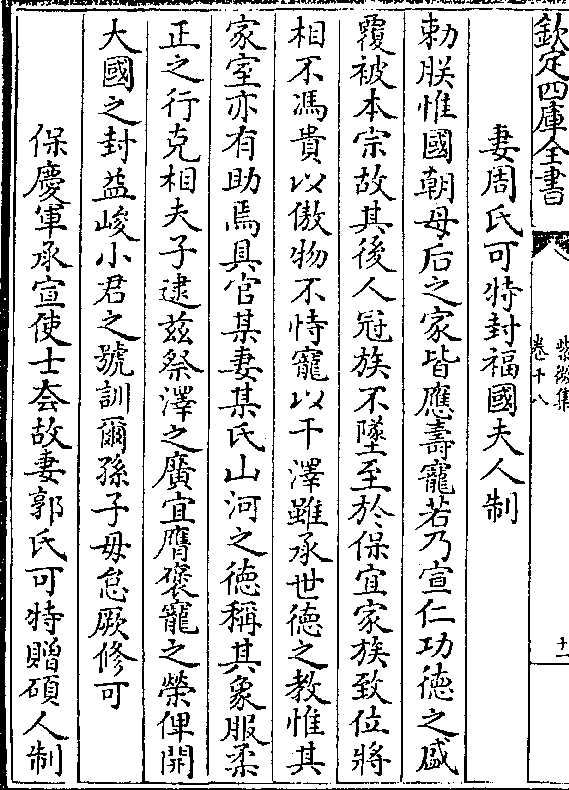 欽定四庫全書
紫微集
卷十八
十一
妻周氏可特封福國夫人制
勅朕惟國朝母后之家皆應壽寵若乃宣仁功德之盛
覆被本宗故其後人冠族不墜至於保宜家族致位將
相不馮貴以傲物不恃寵以干澤雖承世德之教惟其
家室亦有助焉具官某妻某氏山河之德稱其象服柔
正之行克相夫子逮兹祭澤之廣宜膺褒寵之榮俾開
大國之封益峻小君之號訓爾孫子毋怠厥修可
保慶軍承宣使士夽故妻郭氏可特贈碩人制